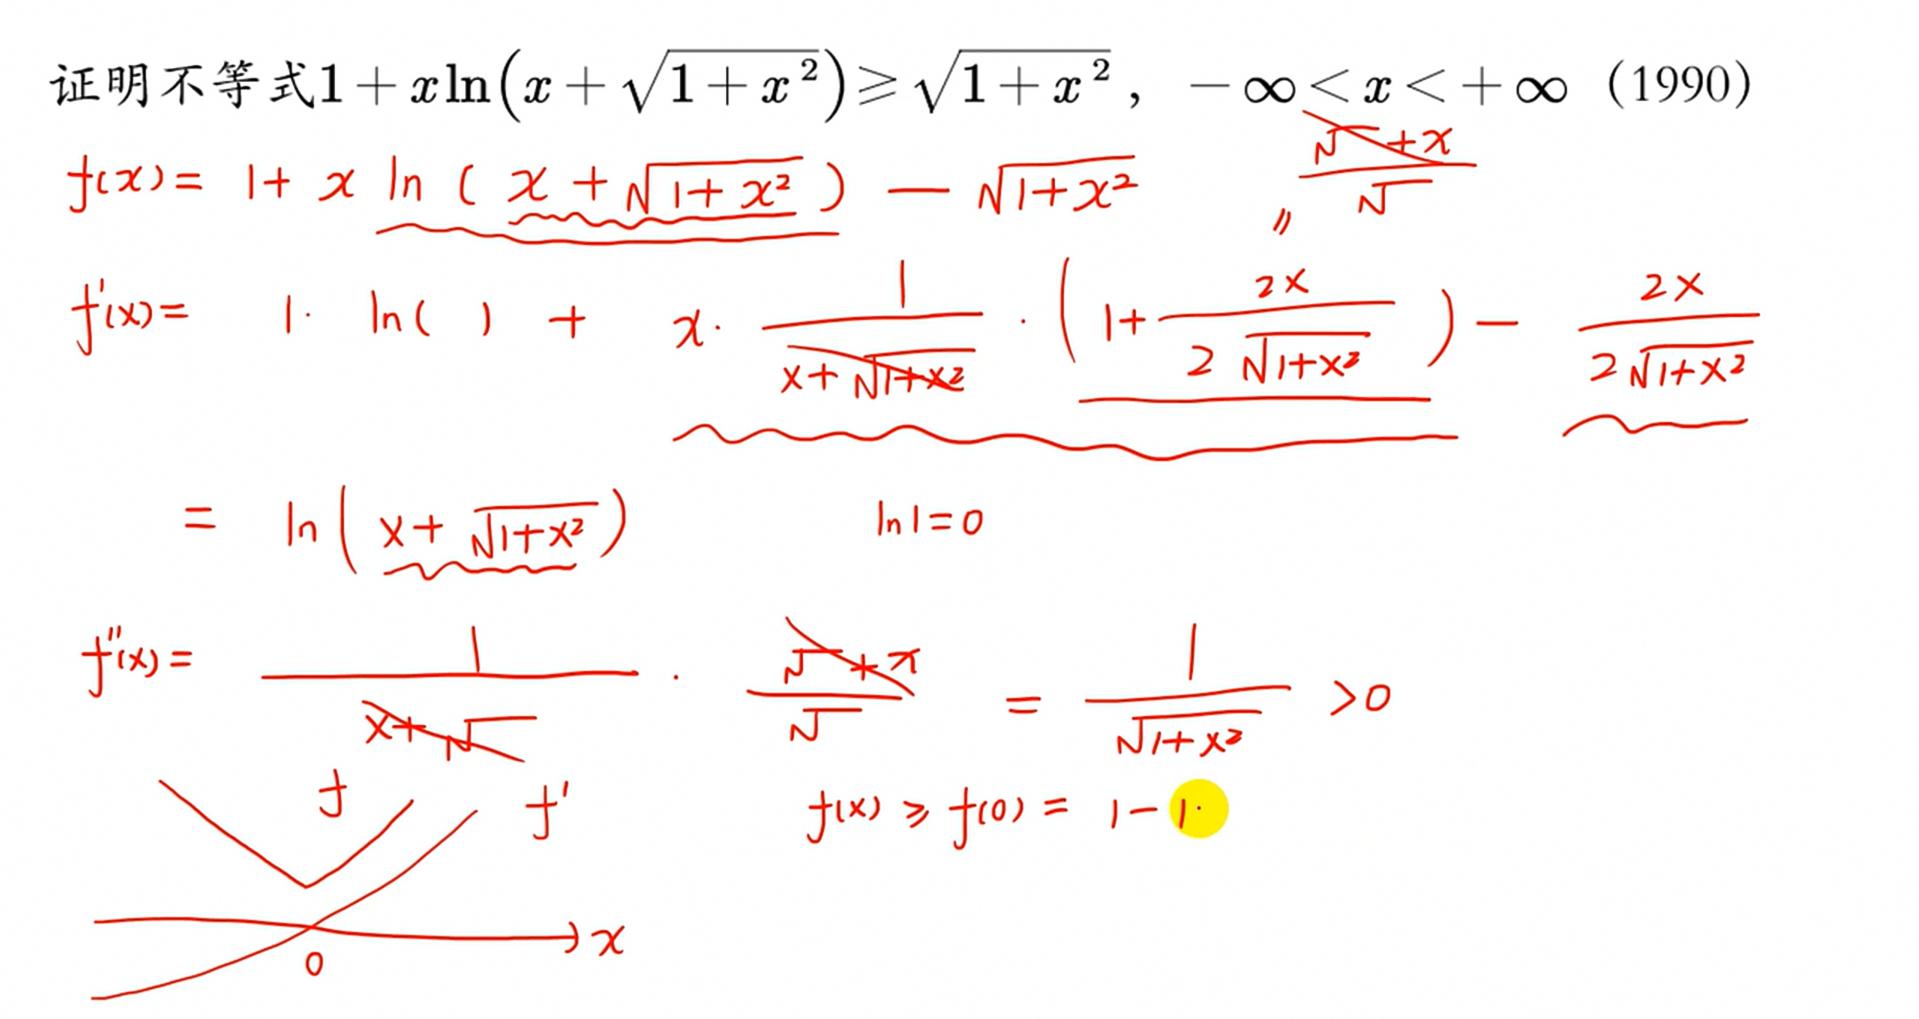 证明不等式1+xln(x+√(1+x²))⩾√(1+x²), -∞<x<+∞ (1990)
f(x)= 1+ x ln ( x + √(1+x²) ) — √(1+x²)
(√ +x)/√
〃
f'(x)= 1· ln( ) + x· 1/(x+√(1+x²)) · (1+ 2x/(2√(1+x²))) − 2x/(2√(1+x²))
= ln( x+ √(1+x²) ) ln1=0
f''(x)= 1/(x+√) · (√ +x)/√ = 1/√(1+x²) >0
f f' f(x) ⩾ f(0) = 1−1·
x
0